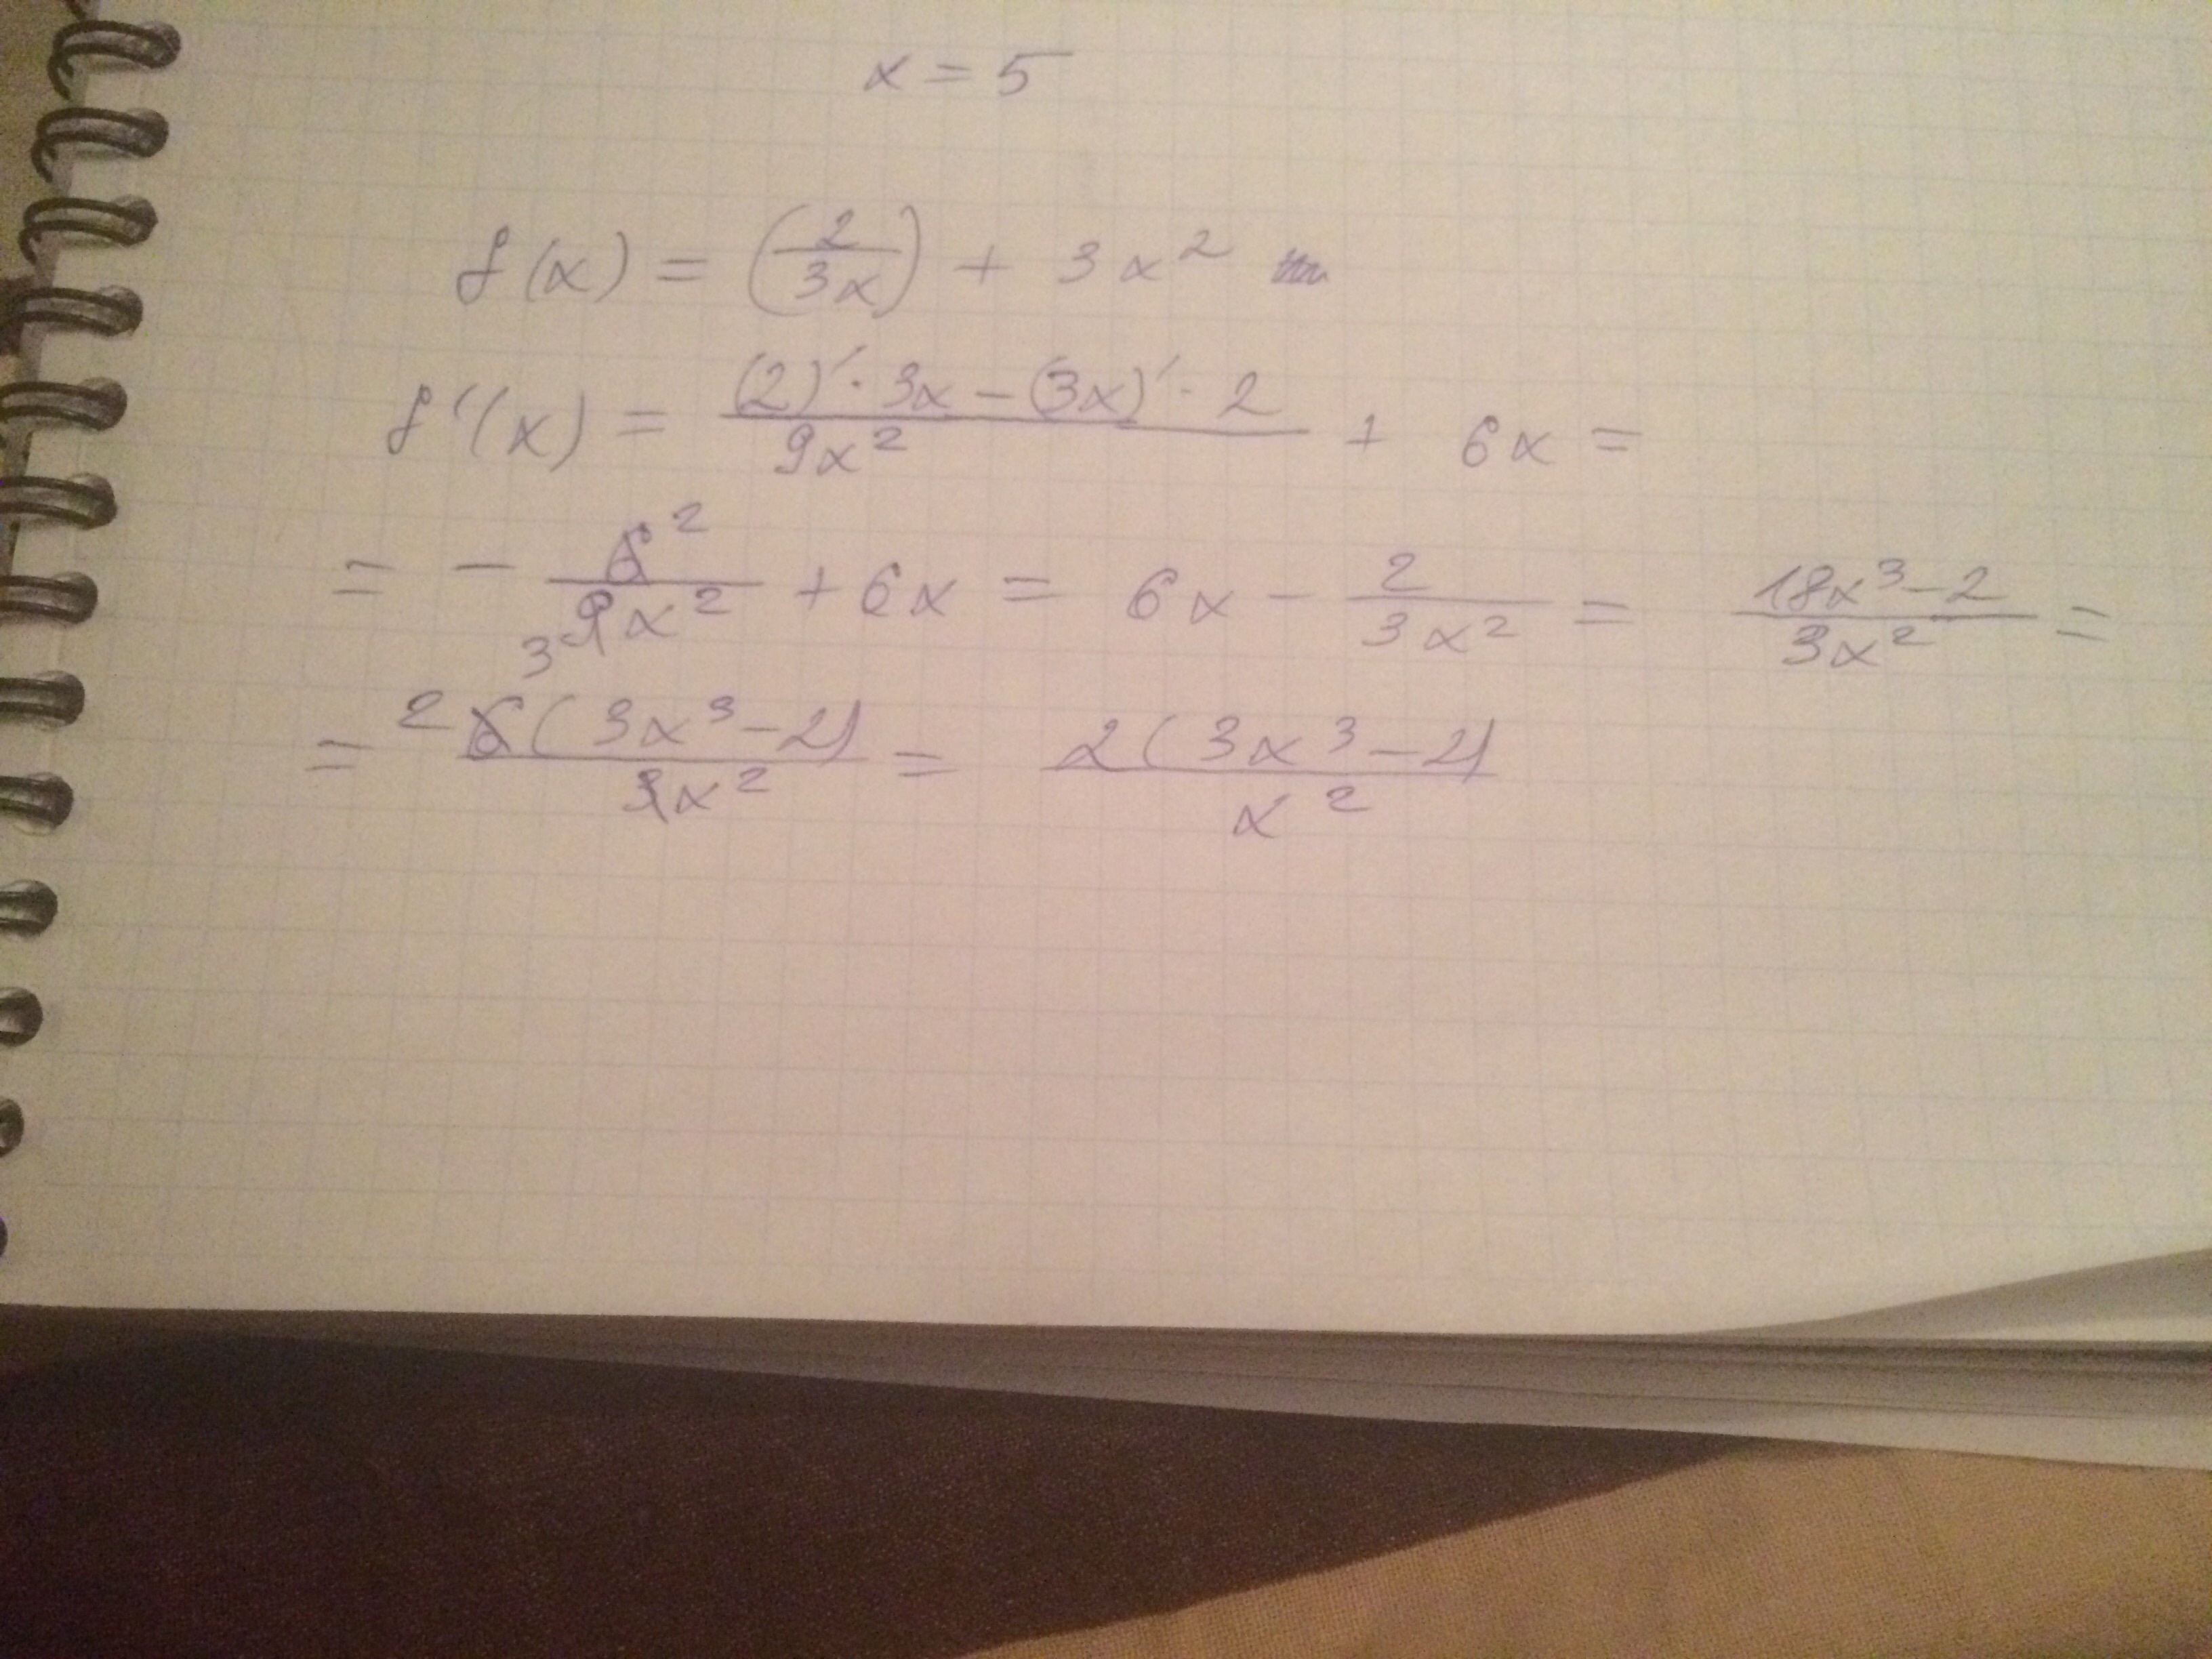 x = 5
f(x) = (2/3x) + 3x²
f'(x) = ((2)' · 3x − (3x)' · 2)/9x² + 6x =
= − 6²/3 9x² + 6x = 6x − 2/3x² = (18x³−2)/3x² =
= 2 6(3x³−2)/3x² = 2(3x³−2)/x²